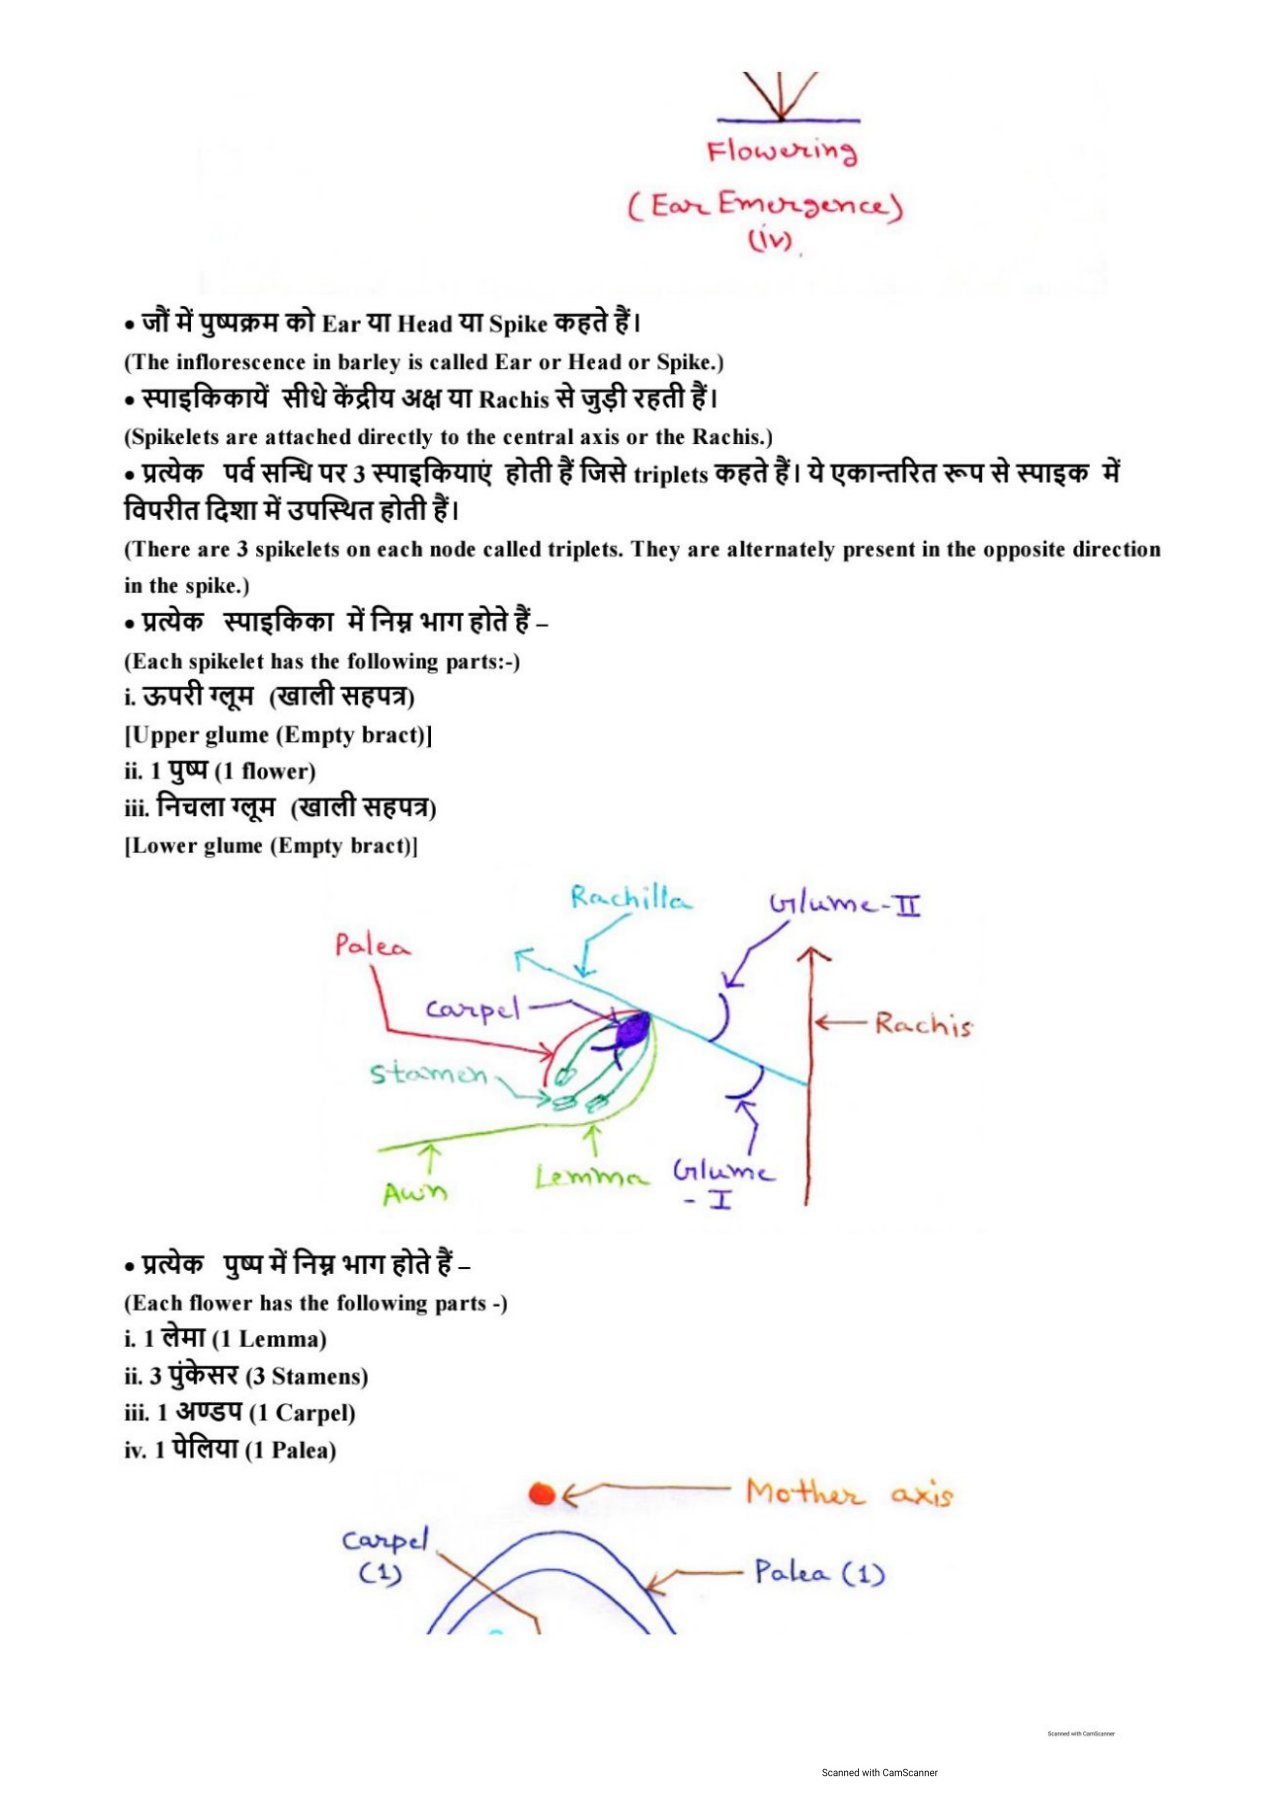 Flowering
(Ear Emergence)
(iv)
• जौं में पुष्पक्रम को Ear या Head या Spike कहते हैं।
(The inflorescence in barley is called Ear or Head or Spike.)
• स्पाइकिकायें सीधे केंद्रीय अक्ष या Rachis से जुड़ी रहती हैं।
(Spikelets are attached directly to the central axis or the Rachis.)
• प्रत्येक पर्व सन्धि पर 3 स्पाइकियाएं होती हैं जिसे triplets कहते हैं। ये एकान्तरित रूप से स्पाइक में
विपरीत दिशा में उपस्थित होती हैं।
(There are 3 spikelets on each node called triplets. They are alternately present in the opposite direction
in the spike.)
• प्रत्येक स्पाइकिका में निम्न भाग होते हैं –
(Each spikelet has the following parts:-)
i. ऊपरी ग्लूम (खाली सहपत्र)
[Upper glume (Empty bract)]
ii. 1 पुष्प (1 flower)
iii. निचला ग्लूम (खाली सहपत्र)
[Lower glume (Empty bract)]
Rachilla
Glume-II
Palea
Carpel
Rachis
Stamen
Awn
Lemma
Glume
- I
• प्रत्येक पुष्प में निम्न भाग होते हैं –
(Each flower has the following parts -)
i. 1 लेमा (1 Lemma)
ii. 3 पुंकेसर (3 Stamens)
iii. 1 अण्डप (1 Carpel)
iv. 1 पेलिया (1 Palea)
Mother axis
Carpel
(1)
Palea (1)
Scanned with CamScanner
Scanned with CamScanner